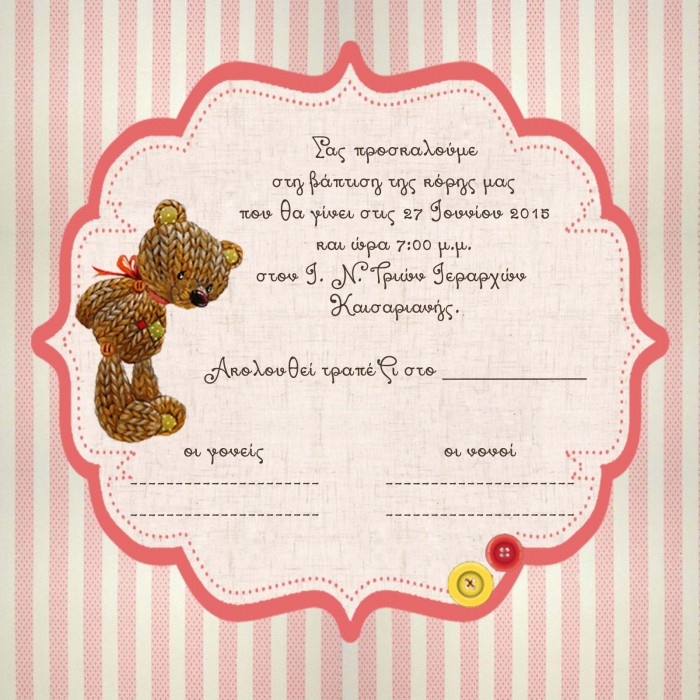 Σας προσκαλούμε
στη βάπτιση της κόρης μας
που θα γίνει στις 27 Ιουνίου 2015
και ώρα 7:00 μ.μ.
στον Ι. Ν. Τριών Ιεραρχών
Καισαριανής.
Ακολουθεί τραπέζι στο ____________
οι γονείς
οι νονοί